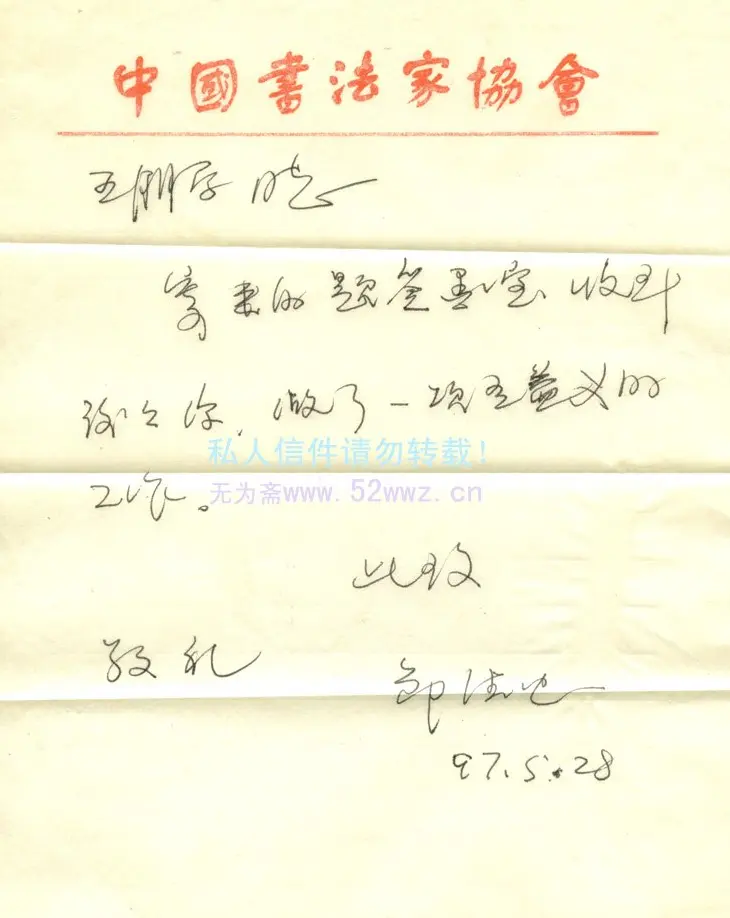 中國書法家協會
王朋学 同志
寄来的题签墨宝收到
谢谢你,做了一项有益义的
私人信件请勿转载!
工作。
无为斋www.52wwz.cn
此致
敬礼
97.5.28